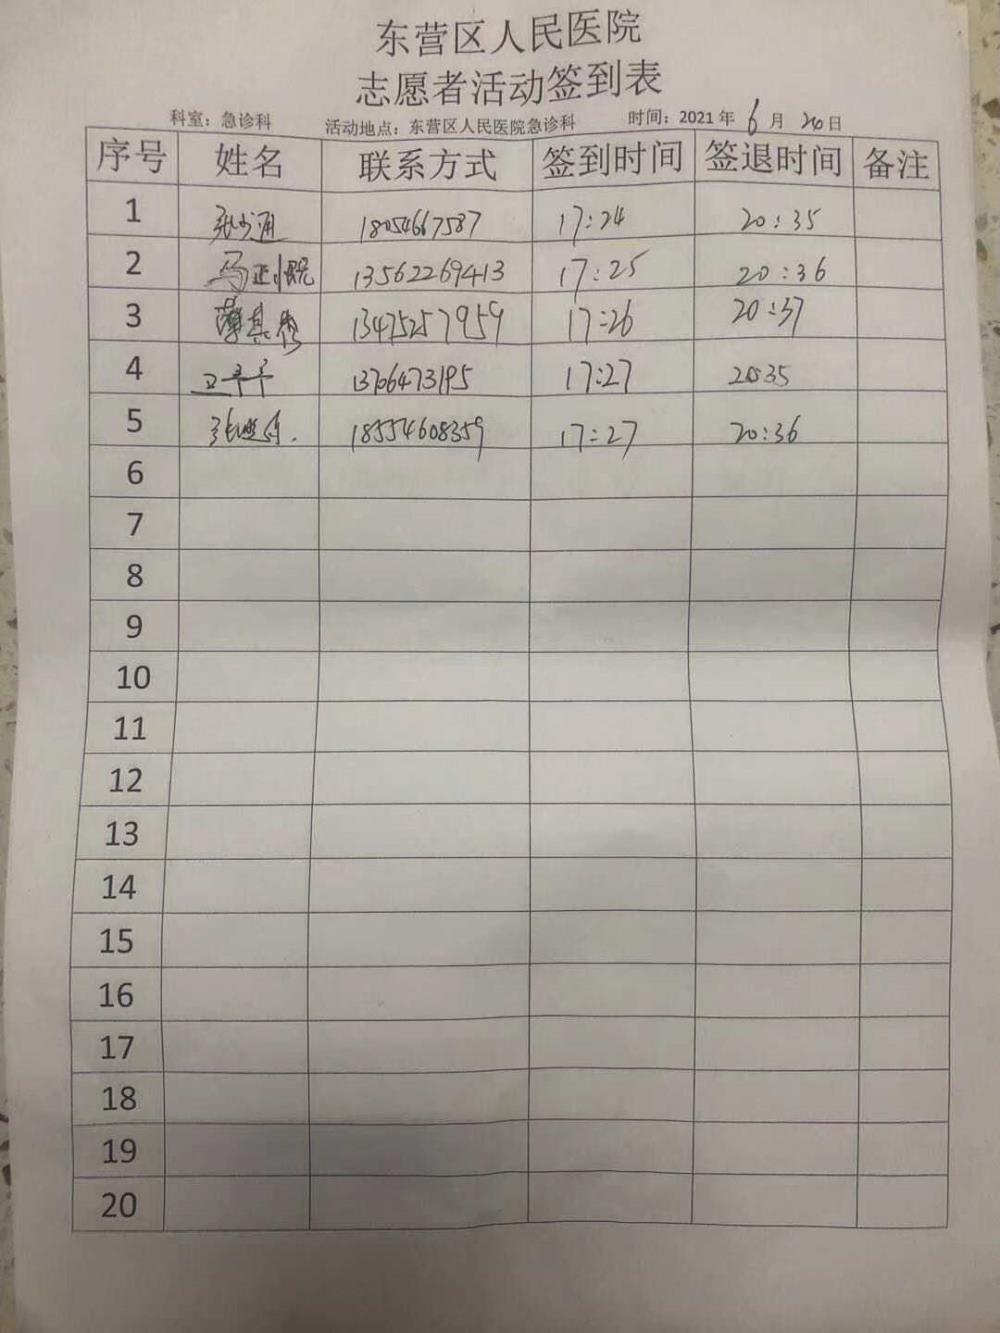 东营区人民医院
志愿者活动签到表
科室：急诊科 活动地点：东营区人民医院急诊科 时间：2021 年 6 月 20 日
序号 姓名 联系方式 签到时间 签退时间 备注
1 18054667587 17:24 20:35
2 13562269413 17:25 20:36
3 13475257959 17:26 20:37
4 13706473195 17:27 20:35
5 18554608359 17:27 20:36
6
7
8
9
10
11
12
13
14
15
16
17
18
19
20